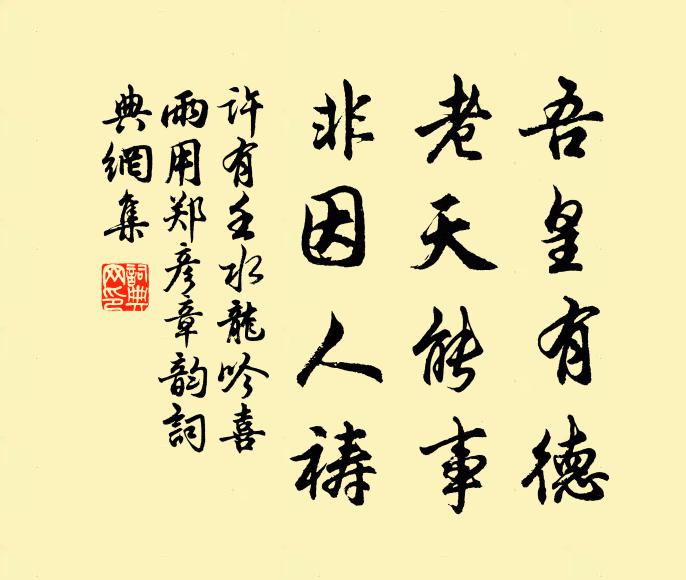 吾皇有德
老天能事
非因人祷
许有壬水龍吟喜
雨用郑彦章韵詞
典網集
詞典网印